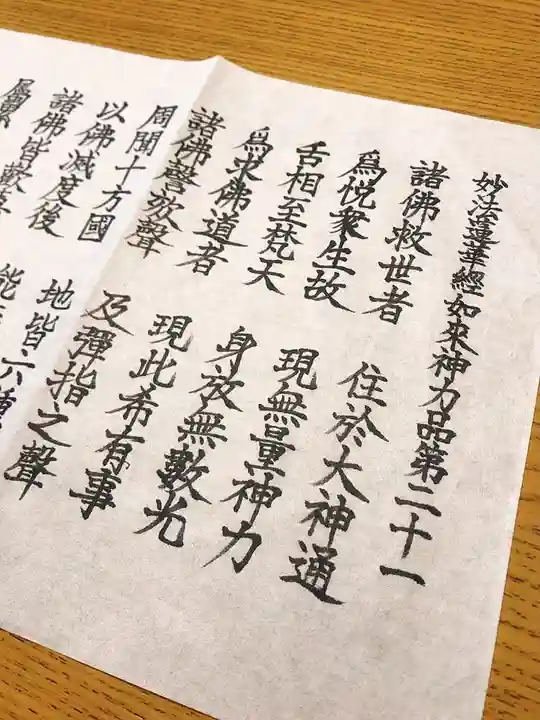 妙法蓮華經如來神力品第二十一
諸佛救世者 住於大神通
爲悅衆生故 現無量神力
舌相至梵天 身放無數光
爲求佛道者 現此希有事
諸佛謦欬聲 及彈指之聲
周聞十方國 地皆六種
以佛滅度後 能
諸佛皆歡
屬累